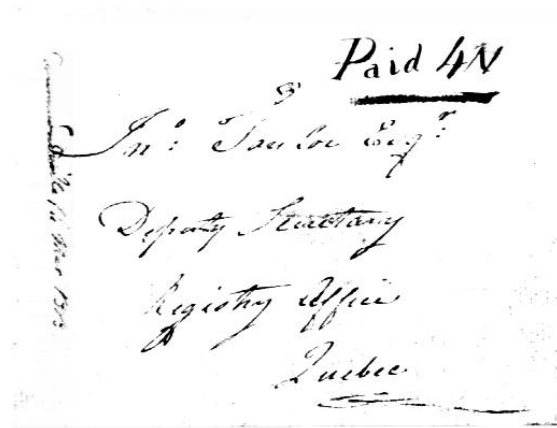 Paid 4N
Jno: Taylor Esqr:
Deputy Secretary
Registry Office
Quebec